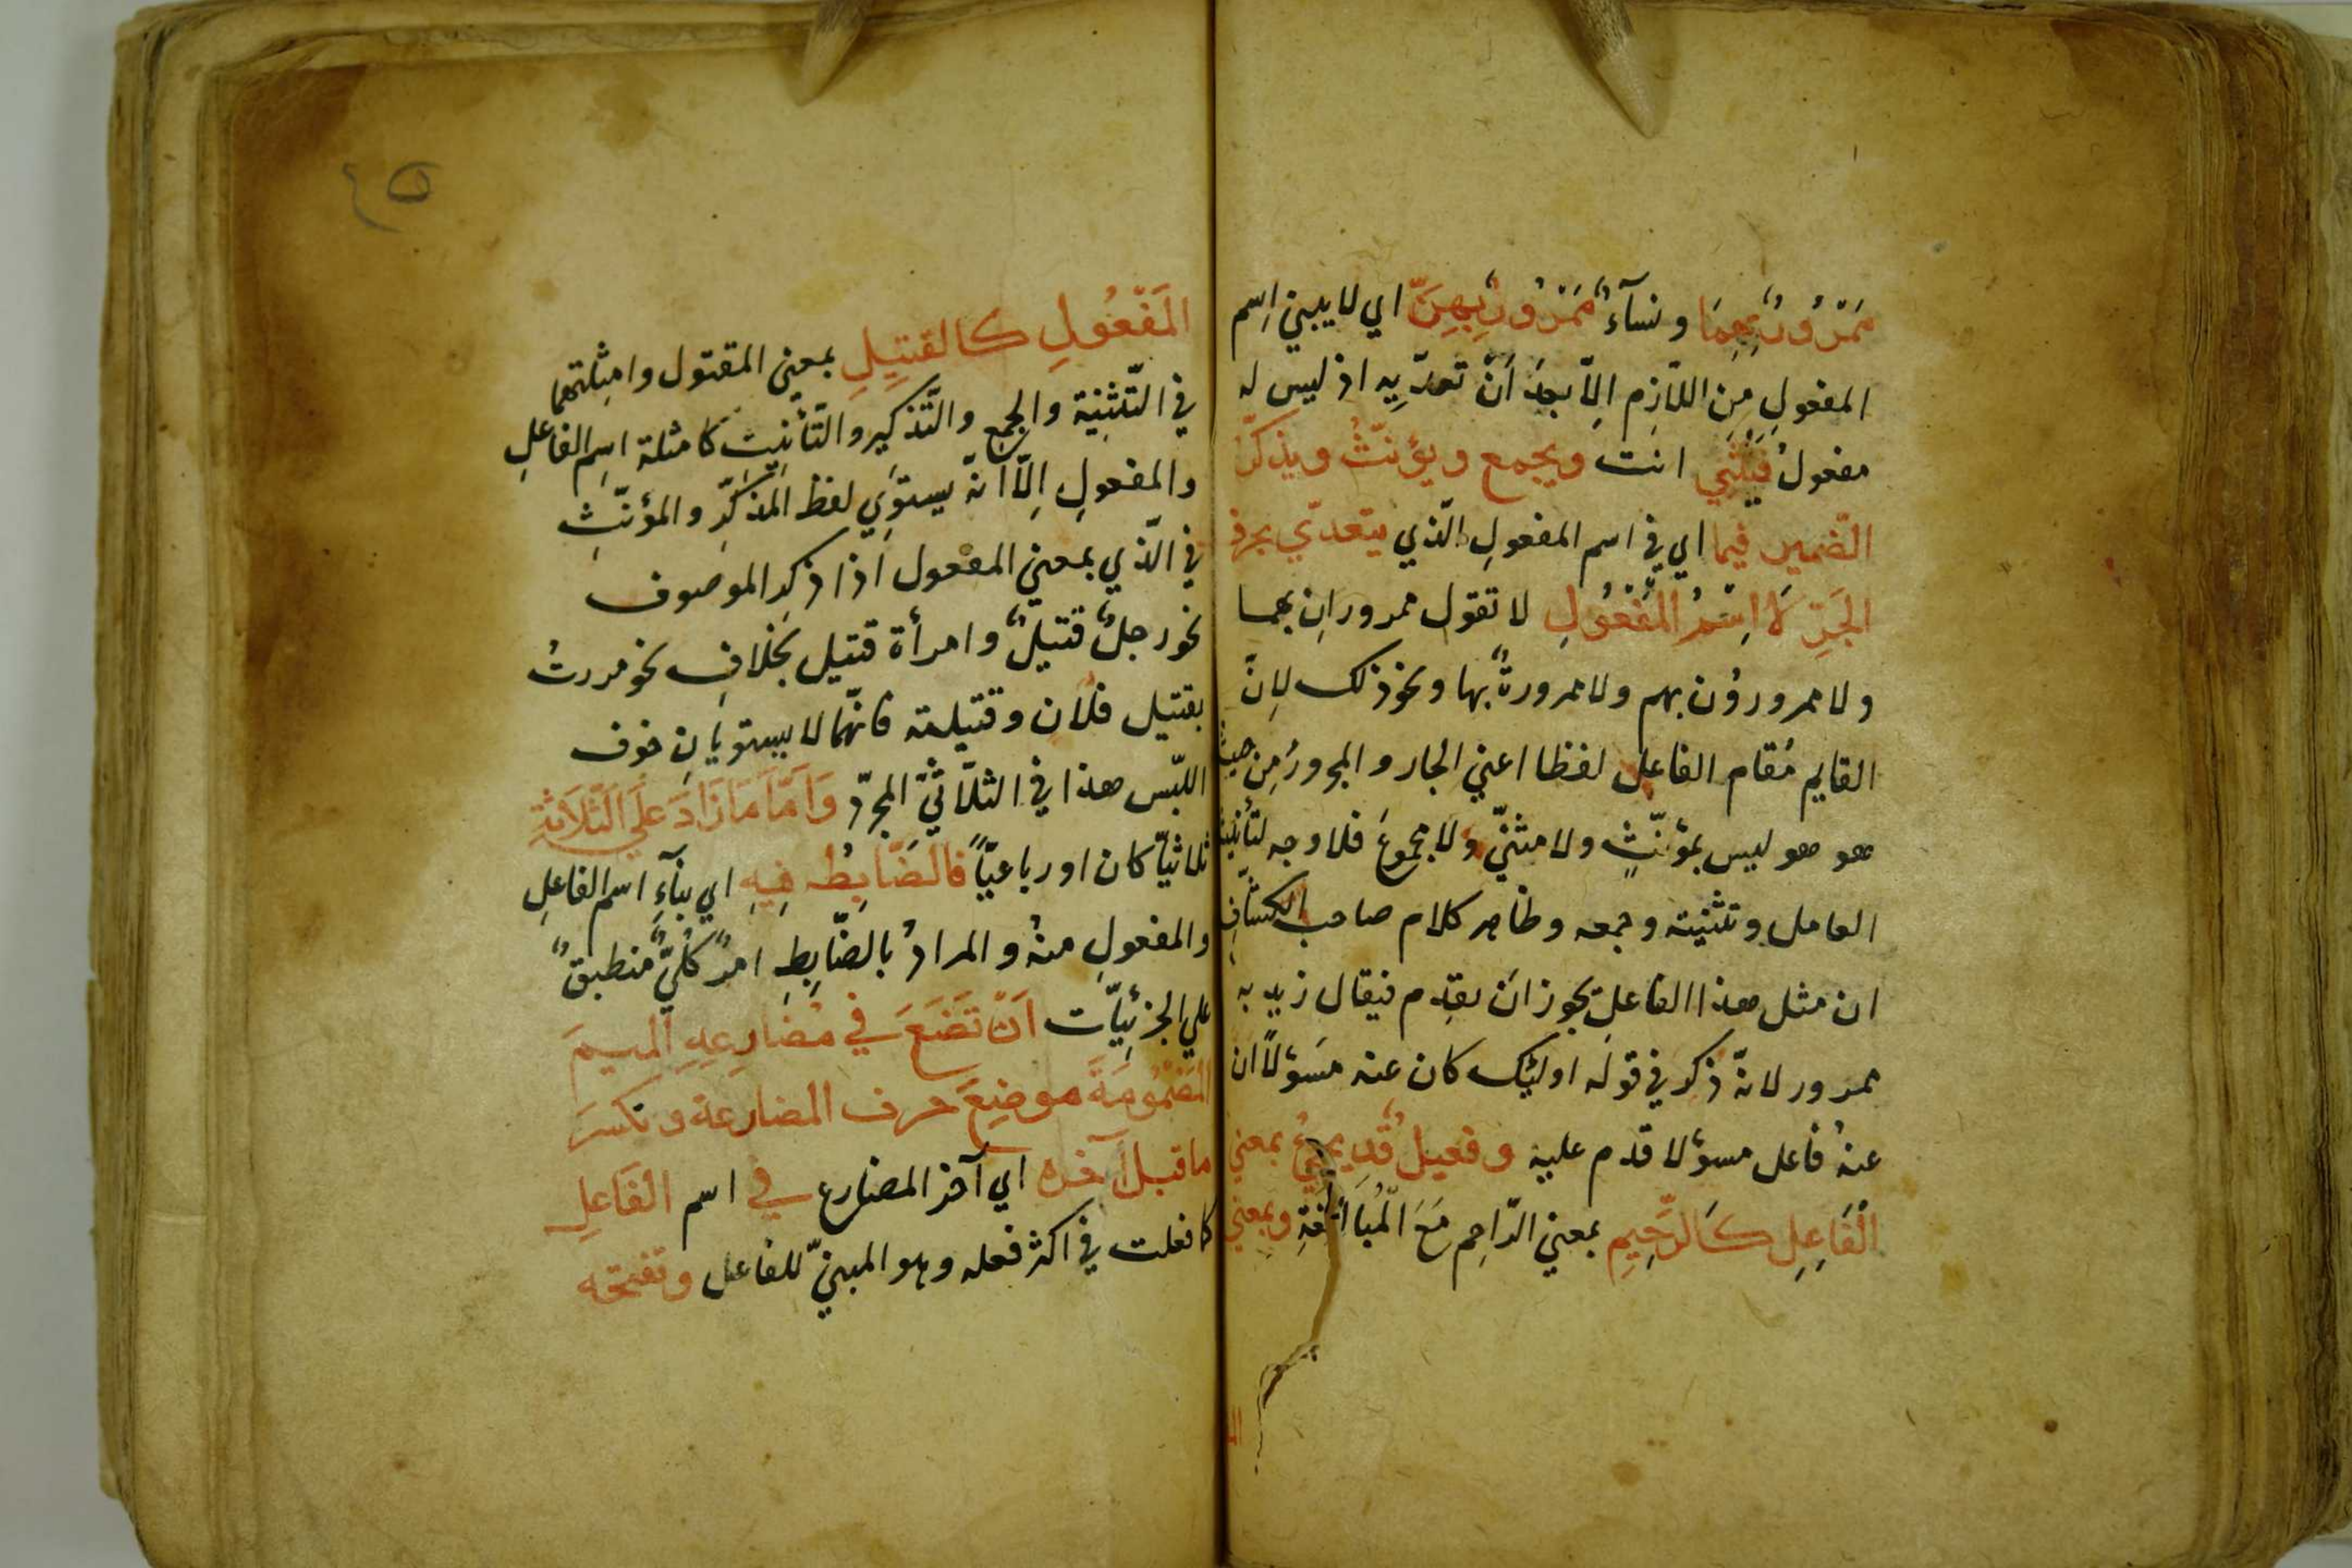 مَمْرُورٌ بِهِمَا ونسآءٌ مَمْرُورٌ بِهِنَّ اي لا يبني اِسم
المفعولِ مِنَ اللاّزِم الاّ بعدَ اَنْ تعدّيِه اذ ليس له
مفعولٌ فَيُثَنّي انت ويجمع ويؤنّثُ ويذكّر
الضّمير فيما اي في اسم المفعولِ الّذي يتعدّي بحرف
الجَرِّ لَا اسْمُ المَفْعُولِ لا تقول ممرورانِ بهما
ولا ممرورُون بهم ولا ممرورةٌ بها ونحو ذلك لاِنّ
القايم مُقام الفاعل لفظا اعني الجار والمجرورُ مِن حيث
هو هو ليس بمؤنّثٍ ولا مثنّي ولا مجموعَ فلا وجه لتأنيث
العامل وتثنيته وجمعه وظاهر كلام صاحب الكشّافِ
ان مثل هذا الفاعلِ يجوز اَن يقدم فيقال زيد به
ممرور لانّه ذكر في قوله اوليك كان عنه مسَؤلاً ان
عنهُ فاعل مسؤلا قدم عليه وفعيلٌ قَد يجيُ بمعني
الْفَاعِلِ كَالرَّحِيمِ بمعني الرّاحِم مَعَ الْمُبَالَغَةِ وبمعني
الم
٤٥
المَفْعُولِ كالقتيلِ بمعني المقتول وامثلتهما
في التّثنِية والجمع والتّذكير والتّأنيث كامثلة اسِم الفاعلِ
والمفعولِ الاّ انّه يستوِي لفظ المذكّرِ والمؤنّثِ
في الّذي بمعني المفعول اذا ذكِر الموصوف
نحو رجلٌ قتيلٌ وامرأة قتيل بخلافِ نحو مررتُ
بقتيل فلان وقتيلته فانّهما لا يستويانِ خوف
اللبّس هذا في الثلاّثيّ المجرّد وَاَمَّا مَا زَادَ عَلَي الثَّلاَثَةِ
ثلاثيّا كان او رباعيّاً فالضَّابِطُ فِيهِ اي بنآءِ اسم الفاعلِ
والمفعولِ منهُ والمرادُ بالضّابِطِ امرٌ كُليٌّ منطبقٌ
علي الجزئيّات اَنْ تَضَعَ في مُضارِعِهِ الميمَ
المَضْمُومَةَ موضِعَ حرف المضارعة وتكسرَ
ما قبل آخره اي آخر المضارع في اسم الفَاعلِ
كما فعلت في اكثر فعله وهو المبنيّ للفاعل وتفتحه